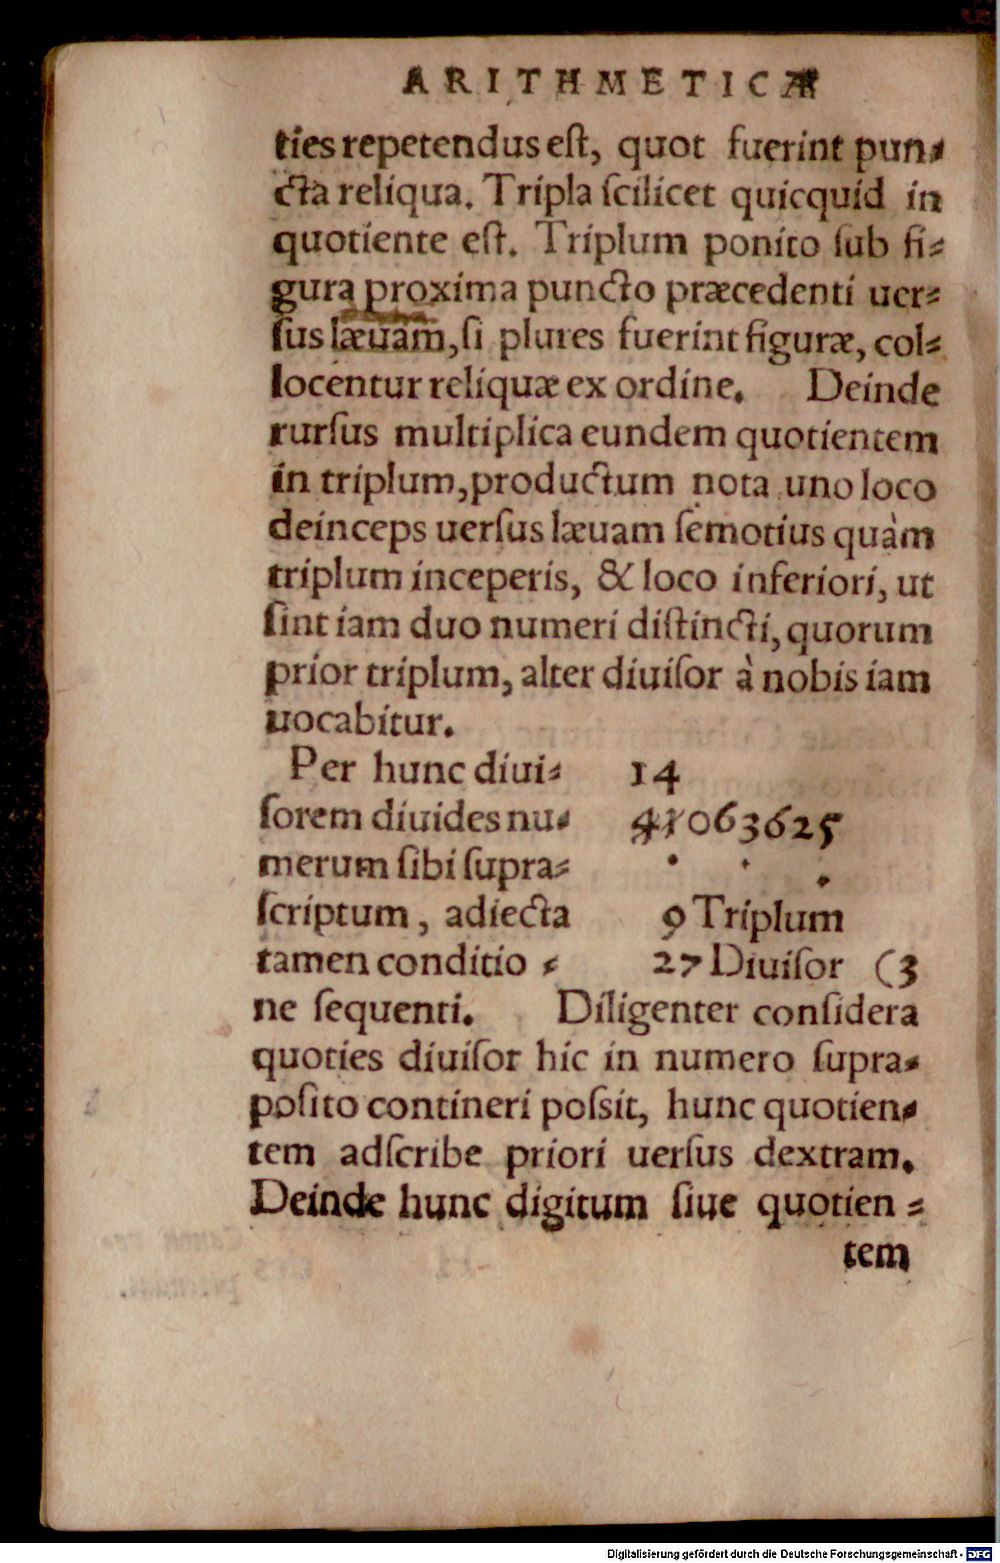 ARITHMETICÆ
ties repetendus eſt, quot fuerint pun⸗
cta reliqua. Tripla ſcilicet quicquid in
quotiente eſt. Triplum ponito ſub fi⸗
gura proxima puncto præcedenti uer⸗
ſus læuam, ſi plures fuerint figuræ, col⸗
locentur reliquæ ex ordine. Deinde
rurſus multiplica eundem quotientem
in triplum, productum nota uno loco
deinceps uerſus læuam ſemotius quàm
triplum inceperis, & loco inferiori, ut
ſint iam duo numeri diſtincti, quorum
prior triplum, alter diuiſor à nobis iam
uocabitur.
Per hunc diui⸗
ſorem diuides nu⸗
merum ſibi ſupra⸗
ſcriptum, adiecta
tamen conditio⸗
14
41063625
. . .
9 Triplum
27 Diuiſor (3
ne ſequenti. Diligenter conſidera
quoties diuiſor hic in numero ſupra⸗
poſito contineri poſsit, hunc quotien⸗
tem adſcribe priori uerſus dextram.
Deinde hunc digitum ſiue quotien⸗
tem
Digitalisierung gefördert durch die Deutsche Forschungsgemeinschaft - DFG